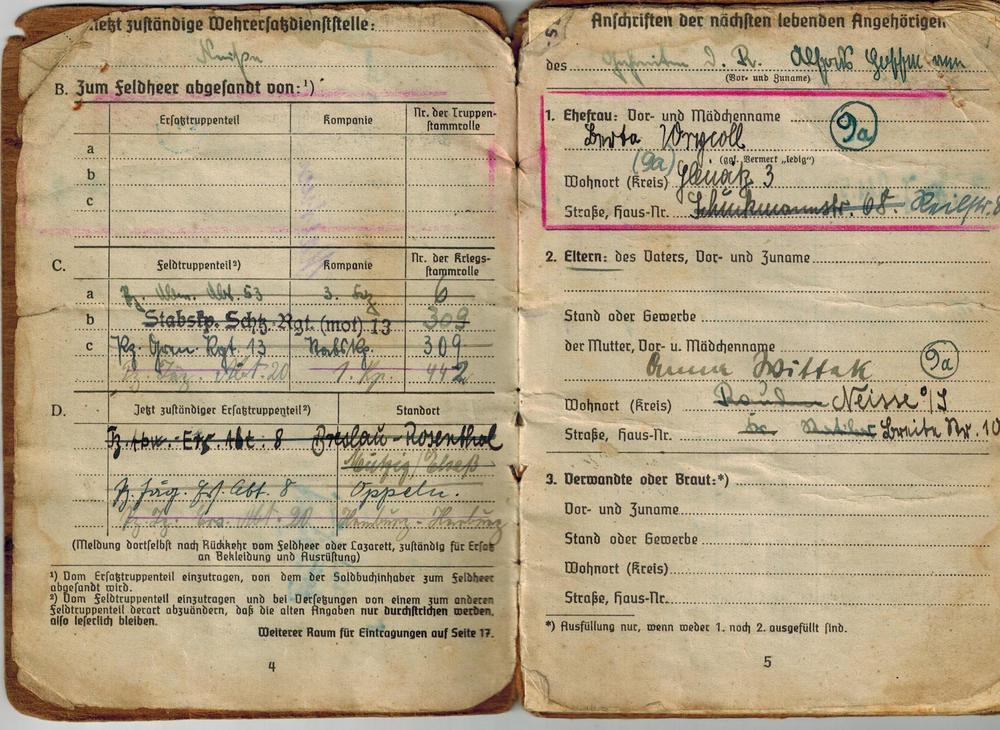 Jetzt zuständige Wehrersatzdienststelle:
Neiße
B. Zum Feldheer abgesandt von:¹)
Ersatztruppenteil Kompanie Nr. der Truppen-
stammrolle
a
b
c
C. Feldtruppenteil²) Kompanie Nr. der Kriegs-
stammrolle
a Pz. Abw. Abt. 53 3. 6
b Stabskp. Schtz. Rgt. (mot) 13 309
c Pz. Gren. Rgt. 13 Stabskp. 309
Pz. Jäg. Abt. 20 1. Kp. 442
D. Jetzt zuständiger Ersatztruppenteil²) Standort
Pz. Abw. Ers. Abt. 8 Breslau-Rosenthal
Mutzig/Elsaß
Pz. Jäg. Ers. Abt. 8 Oppeln.
Pz. Jg. Ers. Abt. 20 Hamburg-Harburg
(Meldung dortselbst nach Rückkehr vom Feldheer oder Lazarett, zuständig für Ersatz
an Bekleidung und Ausrüstung)
¹) Vom Ersatztruppenteil einzutragen, von dem der Soldbuchinhaber zum Feldheer
abgesandt wird.
²) Vom Feldtruppenteil einzutragen und bei Versetzungen von einem zum anderen
Feldtruppenteil derart abzuändern, daß die alten Angaben nur durchstrichen werden,
also leserlich bleiben.
Weiterer Raum für Eintragungen auf Seite 17.
4
Anschriften der nächsten lebenden Angehörigen
des Gefreiten d. R.
(Vor- und Zuname)
1. Ehefrau: Vor- und Mädchenname 9a
Berta
(9a) (ggf. Vermerk „ledig“)
Wohnort (Kreis) Gleiwitz 3
Straße, Haus-Nr. Schuckmannstr. 08.
2. Eltern: des Vaters, Vor- und Zuname
Stand oder Gewerbe
der Mutter, Vor- u. Mädchenname
Anna Wittek 9a
Wohnort (Kreis) Neisse O/S
Straße, Haus-Nr. Breite Nr. 10
3. Verwandte oder Braut:*)
Vor- und Zuname
Stand oder Gewerbe
Wohnort (Kreis)
Straße, Haus-Nr.
*) Ausfüllung nur, wenn weder 1. noch 2. ausgefüllt sind.
5